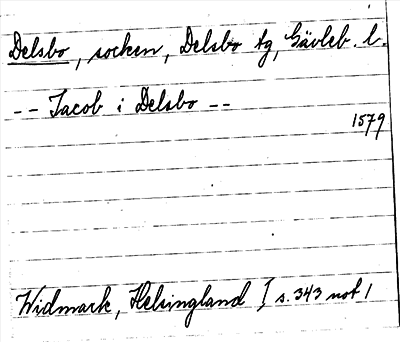 Delsbo, socken, Delsbo tg, Gävleb. l.
-- Jacob i Delsbo --
1579
Widmark, Helsingland I s. 343 not 1